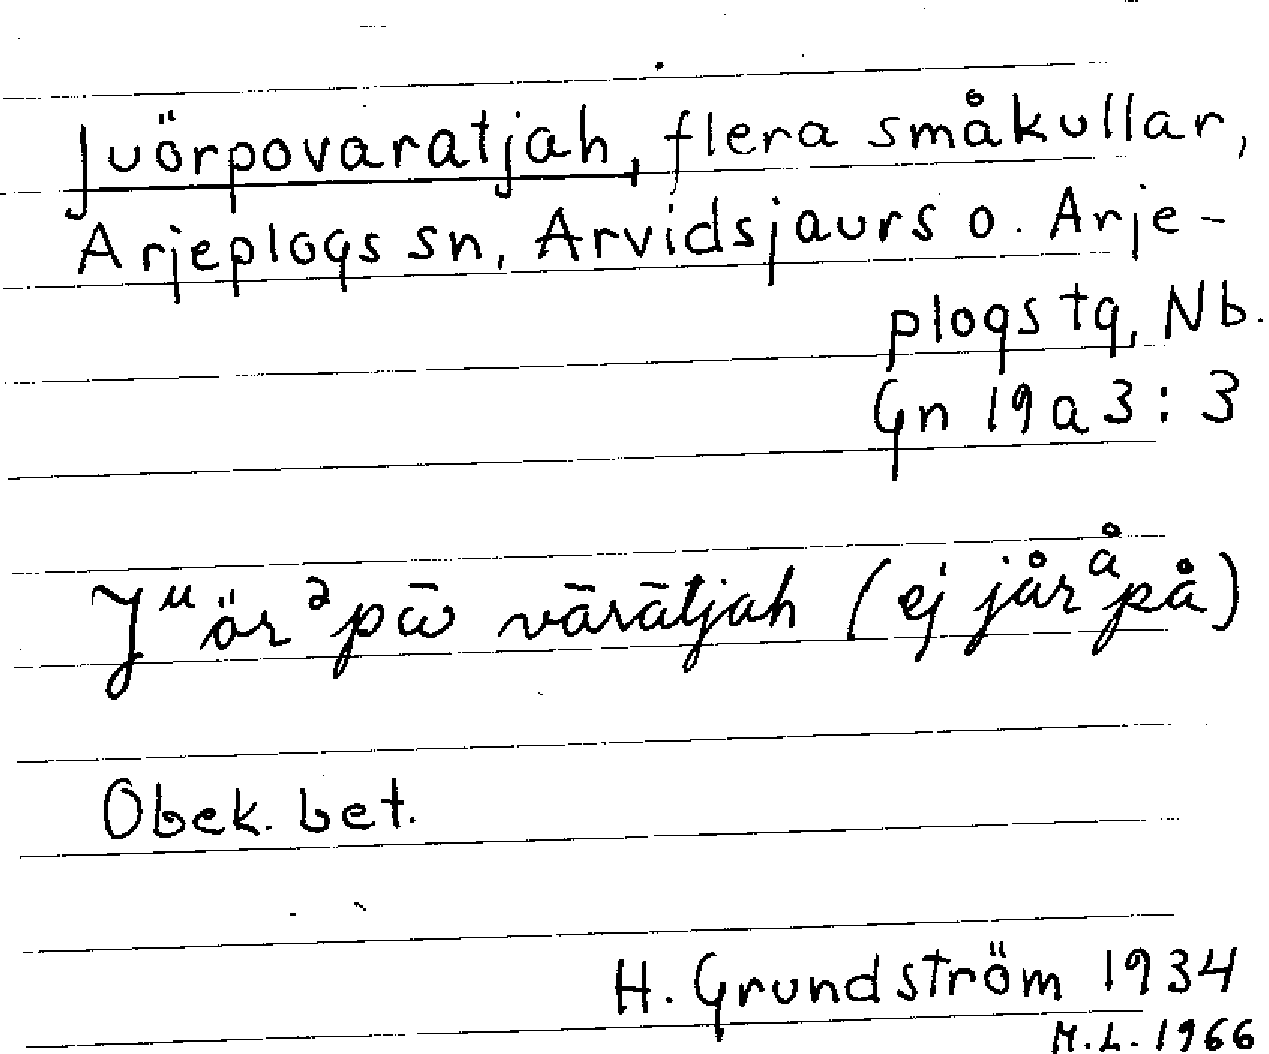 Juörpovaratjah, flera småkullar,
Arjeplogs sn, Arvidsjaurs o. Arje-
plogs tg, Nb.
Gn 19a3:3
Jᵘörᵊpāv̄ vārātjah (ej jårᵃ̊på)
Obek. bet.
H. Grundström 1934
M.L. 1966